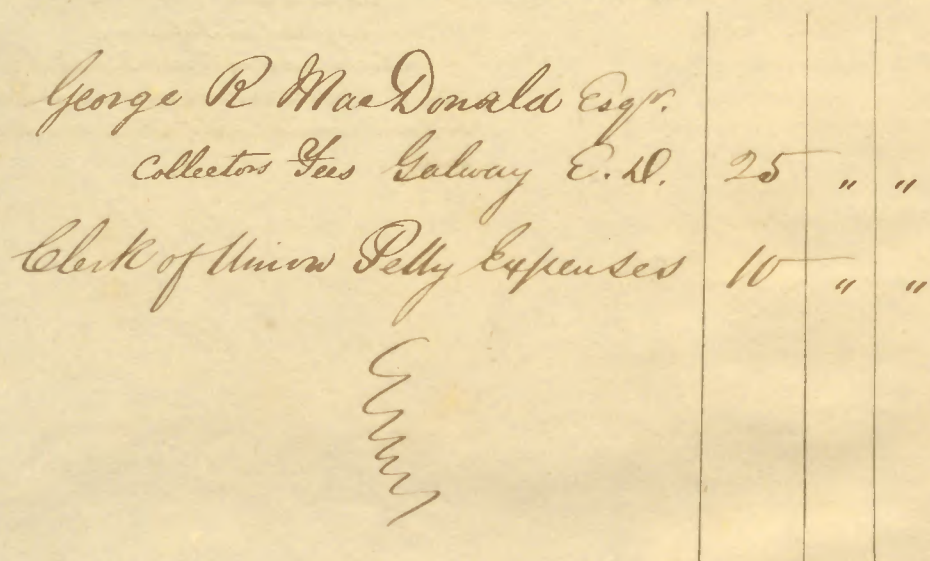 George R MacDonald Esqr.
Collectors Fees Galway E.D. 25 " "
Clerk of Union Petty Expenses 10 " "